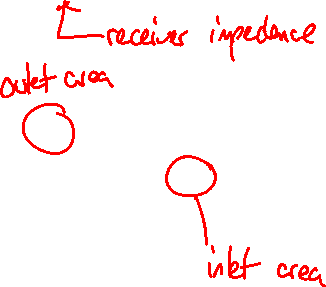 receiver impedence
outlet area
inlet area